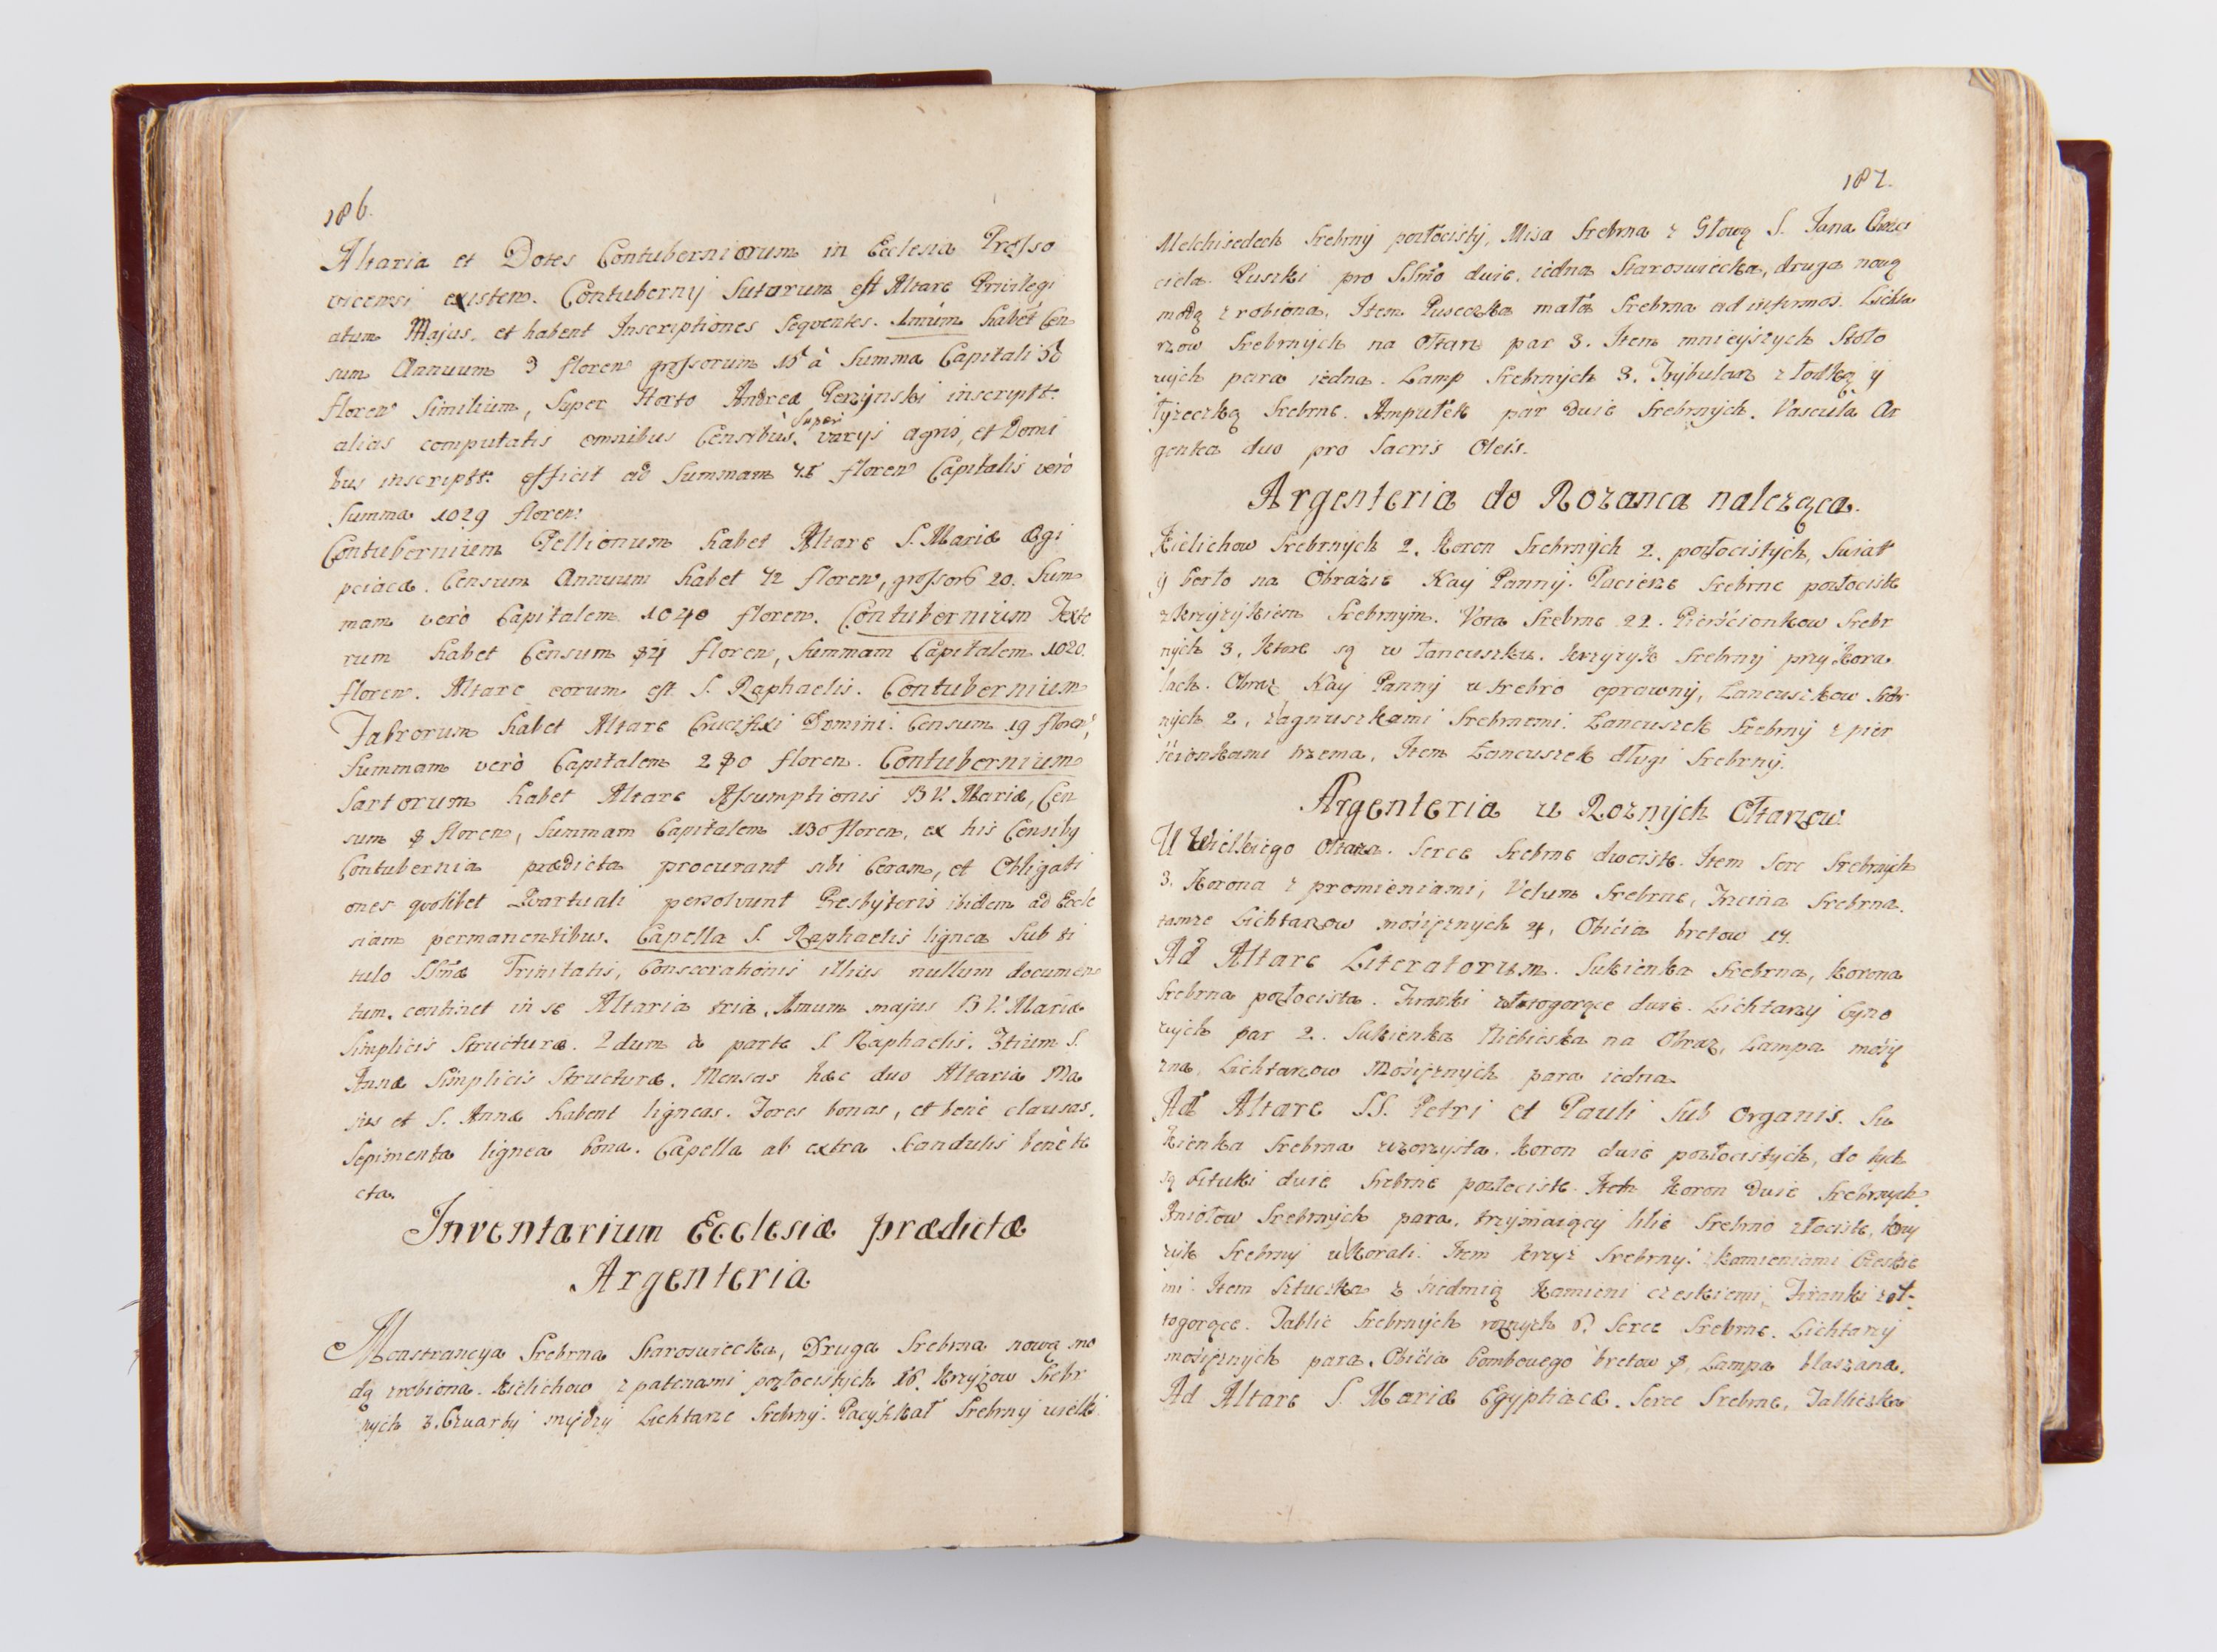 186.
Altaria et Dotes Contuberniorum in Ecclesia Prosso
vicensi existen. Contubernij Sutorum est Altare Privilegi
atum Majus, et habent Inscriptiones Seqventes. Unum habet Cen
sum Annuum 3 floren grossorum 15 à Summa Capitali 50
floren Similium, Super Horto Andrea Perzynski inscript:
alias computatis omnibus Censibus, super varijs agris, et Domi
bus inscript: efficit ad Summam 75 floren Capitalis verò
Summa 1029 floren:
Contubernium Pellionum habet Altare S. Mariæ Ægi
pciacæ. Censum Annuum habet 72 floren, grossor 20. Sum
mam verò Capitalem 1040 floren. Contubernium Texto
rum habet Censum floren, Summam Capitalem 1020.
floren. Altare eorum est S. Raphaelis. Contubernium
Fabrorum habet Altare Crucifixi Domini. Censum 19 floren,
Summam verò Capitalem 280 floren. Contubernium
Sartorum habet Altare Assumptionis B V. Mariæ, Cen
sum 8 floren, Summam Capitalem 130 floren, ex his Censibg
Contubernia prædicta procurant sibi Ceram, et Obligati
ones qvolibet Qvartuali persolvunt Presbyteris ibidem ad Eccle
siam permanentibus. Capella S. Raphaelis lignea Sub ti
tulo SSmæ Trinitatis, Consecrationis illius nullum documen
tum, continet in se Altaria tria, Unum majus B V. Mariæ
Simplicis Structuræ. 2dum à parte S. Raphaelis. 3tium S.
Annæ Simplicis Structuræ. Mensas hæc duo Altaria Ma
jus et S. Annæ habent ligneas. Fores bonas, et benè clausas.
Sepimenta lignea bona. Capella ab extra Scandulis benè te
cta.
Inventarium Ecclesiæ prædictæ
Argenteria
Monstrancya Srebrna Staroswiecka, Druga Srebrna nową mo
dą zrobiona. Kielichow z patenami pozłocistych 16. Krzyżow Srebr
nych 3. Czwarty mydzy Lichtarze Srebrny. Pacyfikał Srebrny wielki
187.
Melchisedech Srebrny pozłocisty, Misa Srebrna z Głową S. Jana Chrzci
ciela. Puszki pro SSmo dwie, iedna Staroswiecka, druga nową
modą zrobiona, Item Puseczka mała Srebrna ad infirmos. Lichta
rzow Srebrnych na Ołtarz par 3. Item mnieyszych Stoło
wych para iedna. Lamp Srebrnych 3. Trybularz z łodką y
łyzeczką Srebrne. Ampułek par dwie Srebrnych. Vascula Ar
gentea duo pro Sacris Oleis.
Argenteria do Rozanca nalezqca.
Kielichow Srebrnych 2. Koron Srebrnych 2. pozłocistych, Swiat
y berło na Obrazie Nay Panny. Pacierze Srebrne pozłociste
z krzyzykiem Srebrnym. Vota Srebrne 22. Pierścionkow Srebr
nych 3, ktore są w łancuszku. Krzyzyk Srebrny przy kora
lach. Obraz Nay Panny w srebro oprawny, Lancuszkow Srebr
nych 2, z agnuszkami Srebrnemi. Lancuszek Srebrny z pier
ścionkami trzema, Item Lancuszek długi Srebrny.
Argenteria u Roznych Ołtarzow
U Wielkiego Ołtarza. Serce Srebrne dwoiste. Item Serc Srebrnych
3. Korona z promieniami, Velum Srebrne, Trcina Srebrna.
tamze Lichtarzow mosiężnych 4, Obicia bretow 14.
Ad Altare Literatorum. Sukienka Srebrna, korona
Srebrna pozłocista. Firanki zołtogorące dwie. Lichtarzy Cyno
wych par 2. Sukienka Niebieska na Obraz, Lampa mosię
zna, Lichtarzow Mosiężnych para iedna.
Ad Altare SS. Petri et Pauli Sub Organis. Su
kienka Srebrna wzorzysta. Koron dwie pozłocistych, do tych
są sztuki dwie Srebrne pozłociste. Item Koron Dwie Srebrnych.
Aniołow Srebrnych para, trzymaiący lilie Srebrno złociste, krzy
zyk Srebrny u Korali. Item krzyż Srebrny z kamieniami Czeskie
mi. Item Sztuczka z siedmią kamieni czeskiemi, Firanki zoł-
togorące. Tablic Srebrnych roznych 6. Serce Srebrne. Lichtarzy
mosiężnych para. Obicia Bombowego bretow 8, Lampa blaszana.
Ad Altare S. Mariæ Egyptiacæ. Serce Srebrne, Tabliczka